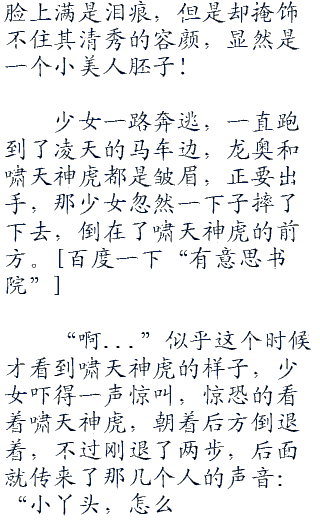 脸上满是泪痕，但是却掩饰
不住其清秀的容颜，显然是
一个小美人胚子！
少女一路奔逃，一直跑
到了凌天的马车边，龙奥和
啸天神虎都是皱眉，正要出
手，那少女忽然一下子摔了
下去，倒在了啸天神虎的前
方。[百度一下“有意思书
院”]
“啊...”似乎这个时候
才看到啸天神虎的样子，少
女吓得一声惊叫，惊恐的看
着啸天神虎，朝着后方倒退
着，不过刚退了两步，后面
就传来了那几个人的声音：
“小丫头，怎么